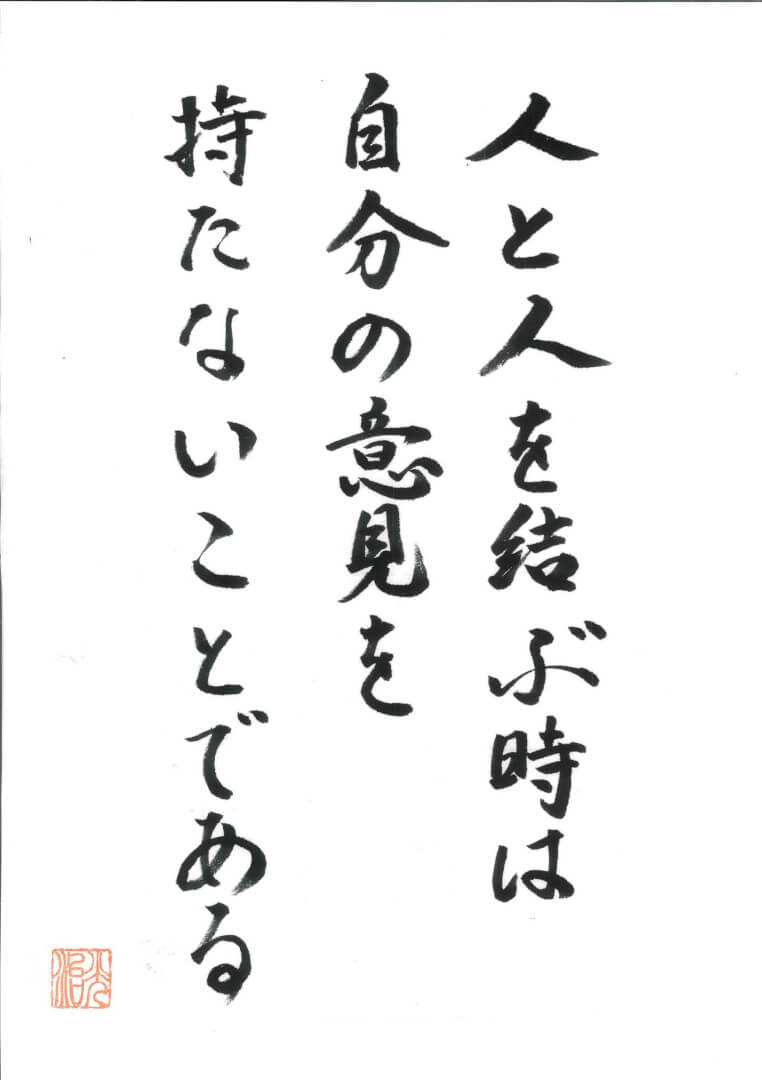 人と人を結ぶ時は
自分の意見を
持たないことである